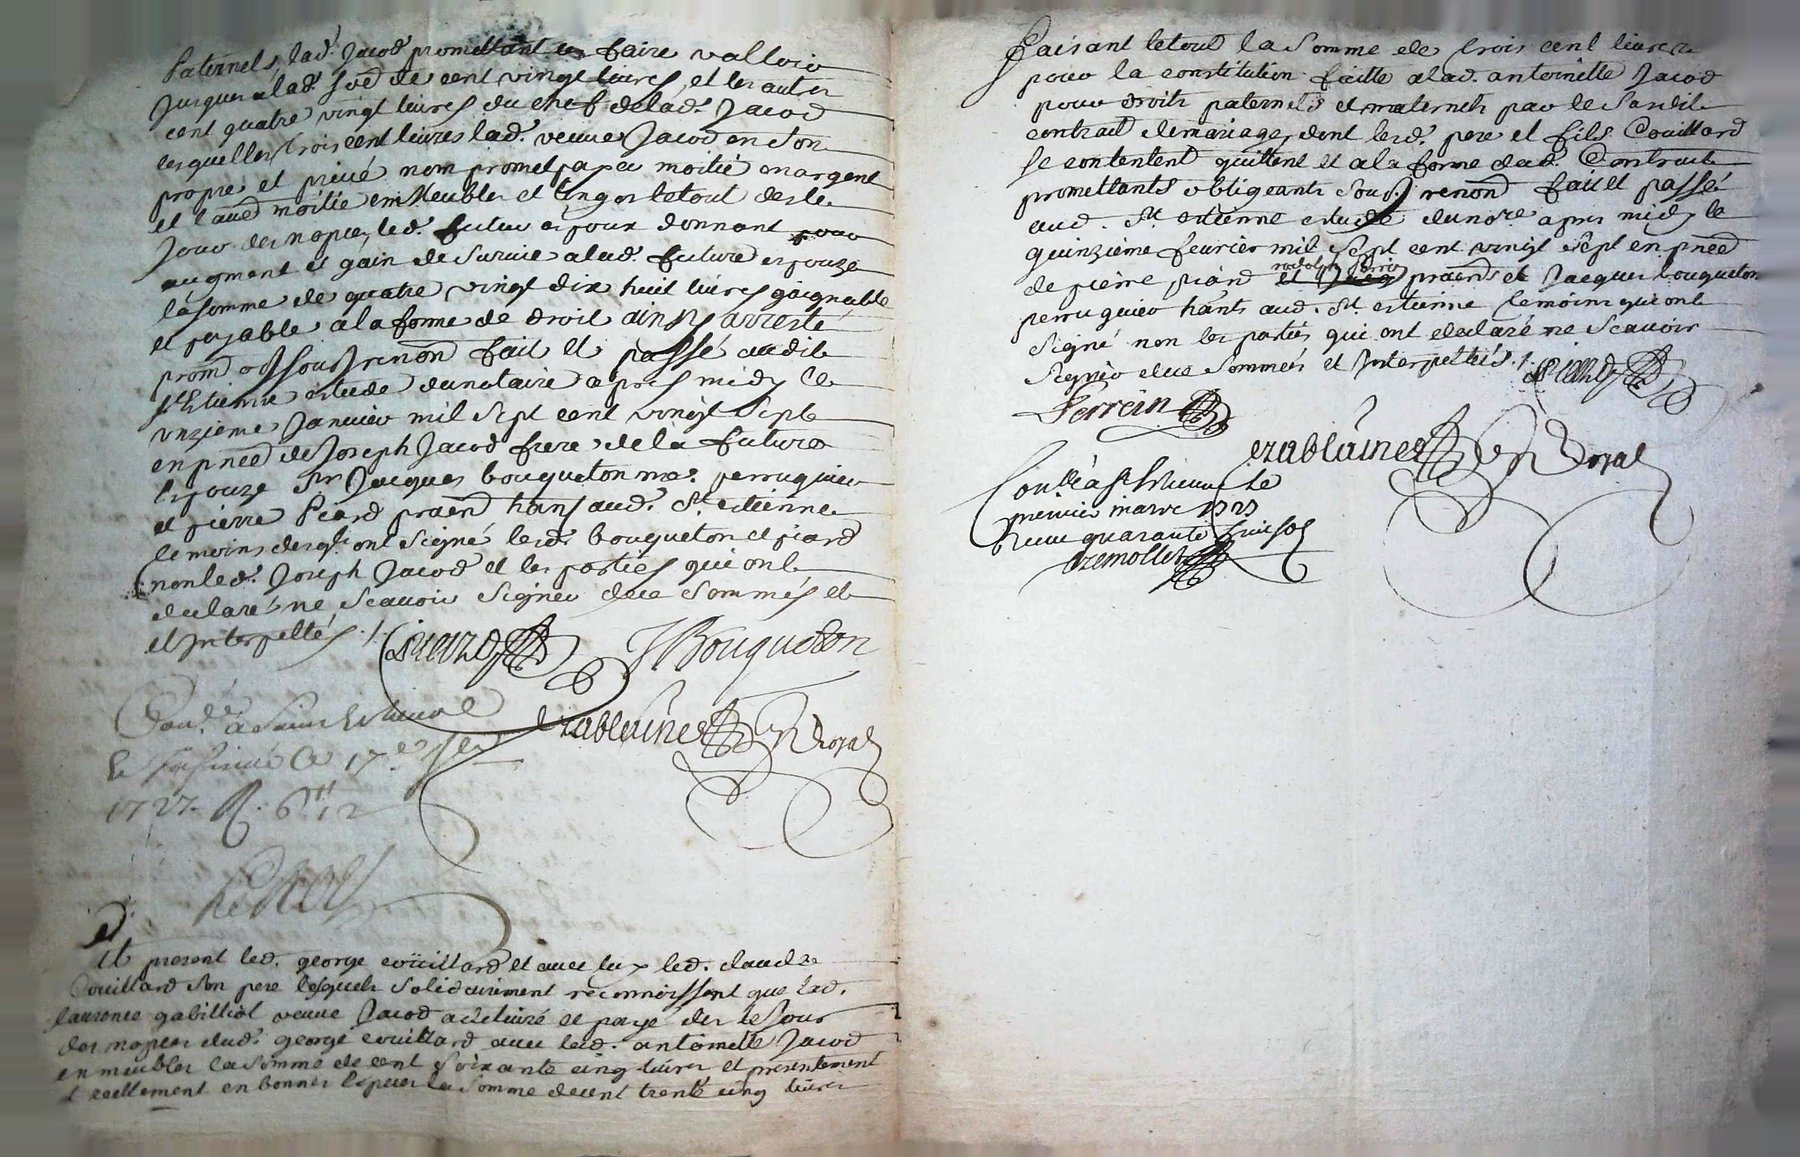 paternels, lad. Jacod promettant en faire valloir
Jusques a lad. soe de cent vingt livres, et les autres
cent quatre vingt livres du chef de lad. Jacod
lesquelles trois cent livres lad. veuve Jacod en son
propre et privé nom promet payer moitié en argent
et l'autre moitié en Meubles et linges le tout des le
Jour des nopces, led. futur espoux donnant pour
augment et gain de survie a lad. future espouze
la somme de quatre vingt dix huit livres gaignable
et payable a la forme de droit ainsy arresté
prom obsous renon fait et passé audit
St Estienne estude du notaire apres midy le
unzieme Janvier mil sept cent vingt sept
en pnce de Joseph Jacod frere de la future
espouze Sr Jacques bouqueton me. perruquier
et pierre Piard praen hans aud. St. estienne
temoins desqls ont signé lesd. bouqueton et piard
non led. Joseph Jacod et les parties qui ont
declaré ne scavoir signer de ce sommés et
et Interpellés ./. Piard JBouqueton
Conlle a Saint Estienne
le 17e Jer
1727. R. 6tt 12
ezablaine Nre Royal
Et present led. george couillard et avec luy led. claude
Couillard son pere lesquels solidairement reconnoissent que lad.
laurence gabilliot veuve Jacod a delivré et payé des le Jour
des nopces dud. george couillard avec lad. antoinette Jacod
en meubles la somme de cent soixante cinq livres et presentement
et reellement en bonnes especes la somme de cent trente cinq livres
faisant le tout la somme de trois cent livres
pour la constitution faitte a lad. antoinette Jacod
pour droits paternels et maternels par le Susdit
contract de mariage, dont lesd. pere et fils Couillard
se contentent quittent et a la forme dud. Contract
promettants obligeants sous) renon fait et passé
aud. St. estienne estude du nore apres midy le
quinzieme fevrier mil sept cent vingt sept en pnce
de pierre piard praens et Jacques bouqueton
perruquier hants aud. St. estienne temoins qui ont
signé non les parties qui ont declaré ne scavoir
signer de ce sommés et Interpellés ./. Piard
Ferrein
ezablaine Nre Royal
Conlle a St Estienne le
premier mars 1727
Receu quarante huit sols
Tremollet